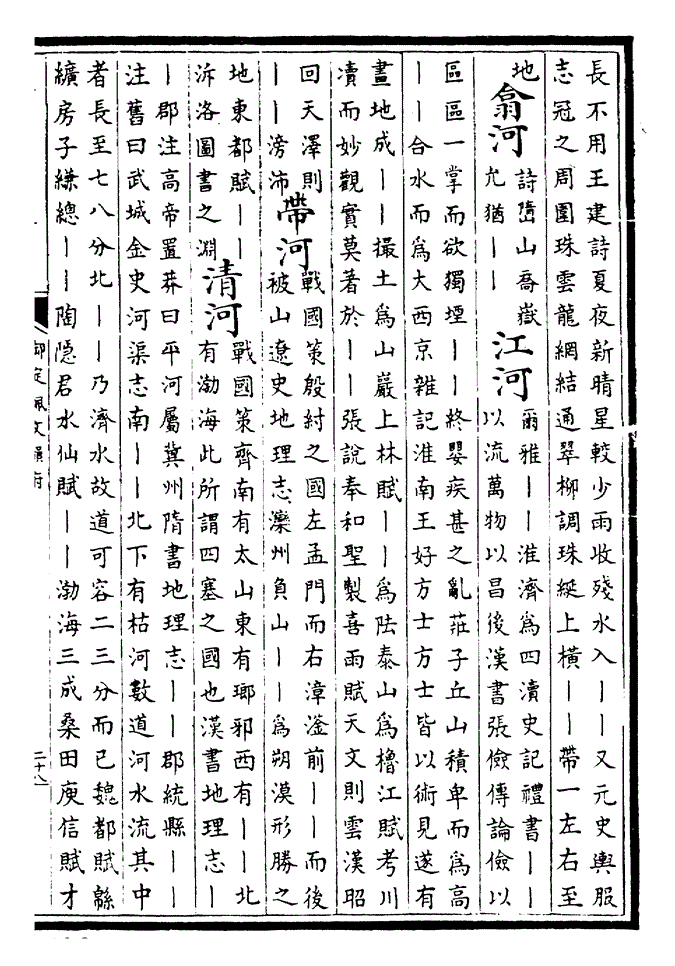 長不用王建詩夏夜新晴星較少雨收殘水入——又元史輿服
志冠之周圍珠雲龍網結通翠柳調珠綖上橫——帶一左右至
地
翕河
詩嶞山喬嶽
允猶——
江河
爾雅——淮濟爲四瀆史記禮書——
以流萬物以昌後漢書張儉傳論儉以
區區一掌而欲獨堙——終嬰疾甚之亂莊子丘山積卑而爲高
——合水而爲大西京雜記淮南王好方士方士皆以術見遂有
畫地成——撮土爲山巖上林賦——爲阹泰山爲櫓江賦考川
瀆而妙觀實莫著於——張說奉和聖製喜雨賦天文則雲漢昭
回天澤則
——滂沛
帶河
戰國策殷紂之國左孟門而右漳滏前——而後
被山遼史地理志灤州負山——爲朔漠形勝之
地東都賦——
泝洛圖書之淵
清河
戰國策齊南有太山東有瑯邪西有——北
有渤海此所謂四塞之國也漢書地理志—
—郡注高帝置莽曰平河屬冀州隋書地理志——郡統縣——
注舊曰武城金史河渠志南——北下有枯河數道河水流其中
者長至七八分北——乃濟水故道可容二三分而已魏都賦緜
纊房子縑總——陶隱君水仙賦——渤海三成桑田庾信賦才
御定佩文韻府
二十八